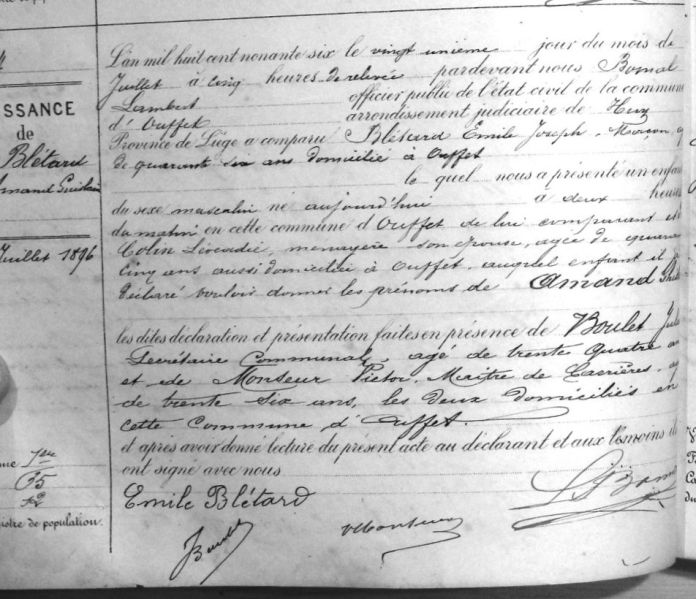 SSANCE
de
Blétard
Juillet 1896
L'an mil huit cent nonante six le vingt unième jour du mois de
Juillet à cinq heures de relevée pardevant nous Bomal
Lambert officier public de l'état civil de la commune
d'Ouffet arrondissement judiciaire de Huy
Province de Liége a comparu Blétard Emile Joseph, Maçon,
de quarante six ans domicilié à Ouffet
le quel nous a présenté un enfan
du sexe masculin né aujourd'hui à deux heures
du matin en cette commune d'Ouffet de lui comparant et
Colin Léocadie, ménagère son épouse, agée de quara
cinq ans aussi domiciliée à Ouffet, auquel enfant il
déclaré vouloir donner les prénoms de Amand
les dites déclaration et présentation faites en présence de Boulet Jules
Secrétaire Communal, agé de trente quatre an
et de Monseur Victor, Maître de Carrières,
de trente six ans, les deux domiciliés en
cette Commune d'Ouffet.
et après avoir donné lecture du présent acte au déclarant et aux témoins ils
ont signé avec nous
Emile Blétard
istre de population.